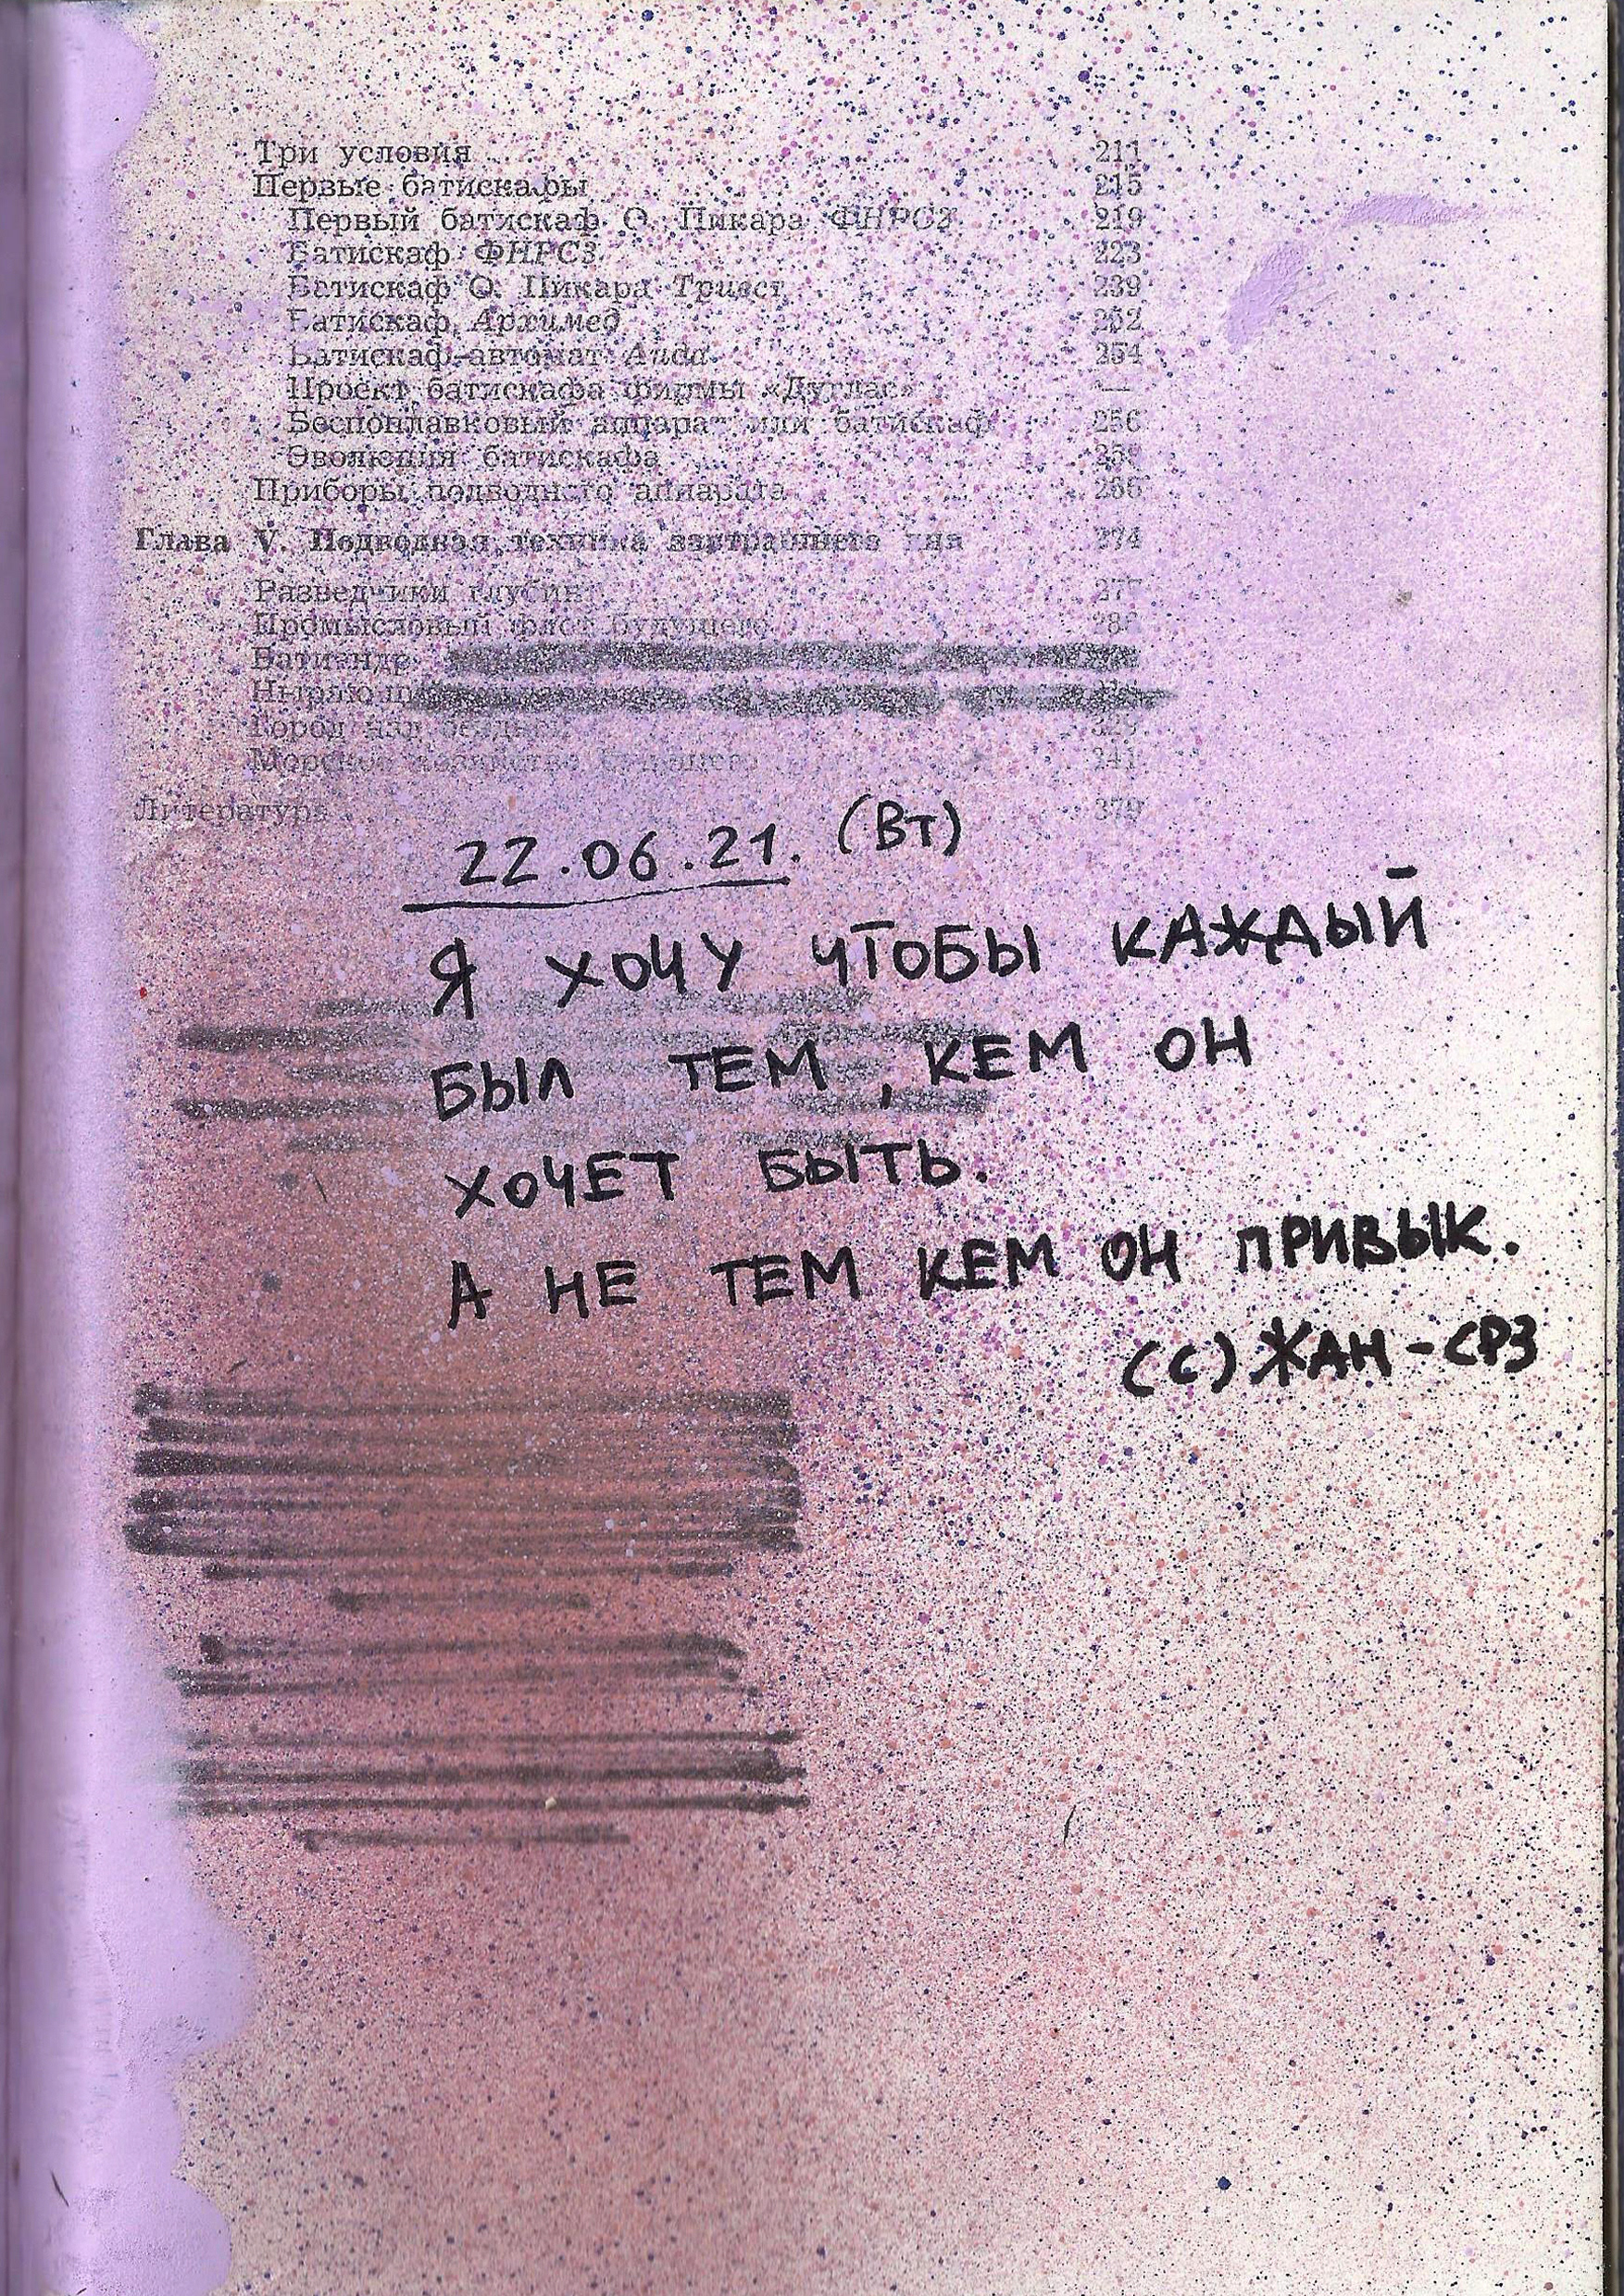 Три условия 211
Первые батискафы 215
Первый батискаф О. Пикара ФНРС2 219
Батискаф ФНРС3 223
Батискаф О. Пикара Триест 239
Батискаф Архимед 252
Батискаф-автомат Аида 254
Проект батискафа фирмы «Дуглас» —
Беспоплавковый аппарат или батискаф 256
Эволюция батискафа
Приборы подводного аппарата
Глава V. Подводная техника завтрашнего дня 274
Разведчики глубин 277
Промысловый флот будущего
Батиандр
Город над бездной 329
Морское хозяйство будущего 341
Литература 379
22.06.21. (Вт)
Я ХОЧУ ЧТОБЫ КАЖДЫЙ
БЫЛ ТЕМ, КЕМ ОН
ХОЧЕТ БЫТЬ.
А НЕ ТЕМ КЕМ ОН ПРИВЫК.
(с) ЖАН-СРЗ